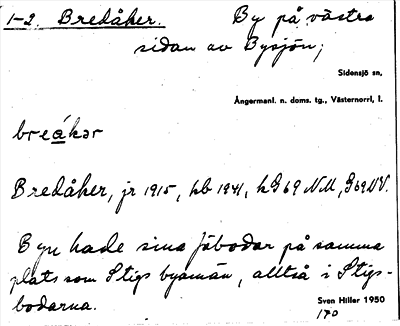 1-2. Bredåker. By på västra
sidan av Bysjön;
Sidensjö sn,
Ångermanl. n. doms. tg., Västernorrl. l.
breákər
Bredåker, jr 1915, kb 1941, kG 69 NM, G69NV.
Byn hade sina fäbodar på samma
plats som Stigs byamän, alltså i Stigs-
bodarna.
Sven Hiller 1950
170